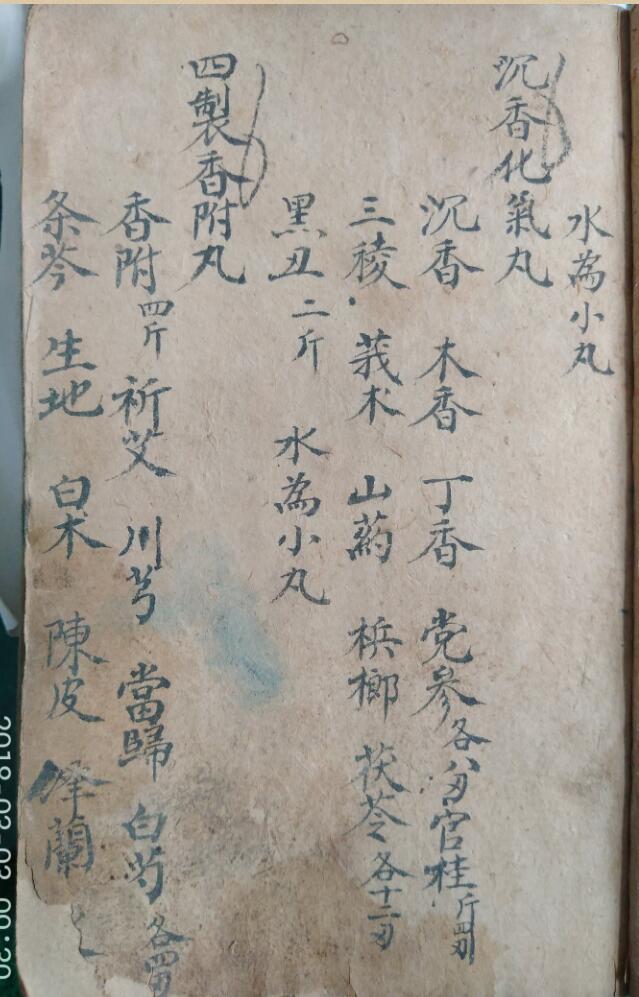 水為小丸
沉香化氣丸
沉香 木香 丁香 党參各八刄官桂斤四刄
三稜 莪术 山葯 梹榔 茯苓各十二刄
黑丑二斤 水為小丸
四製香附丸
香附四斤 祈艾 川芎 當歸 白芍各四刄
条芩 生地 白术 陳皮 泽蘭